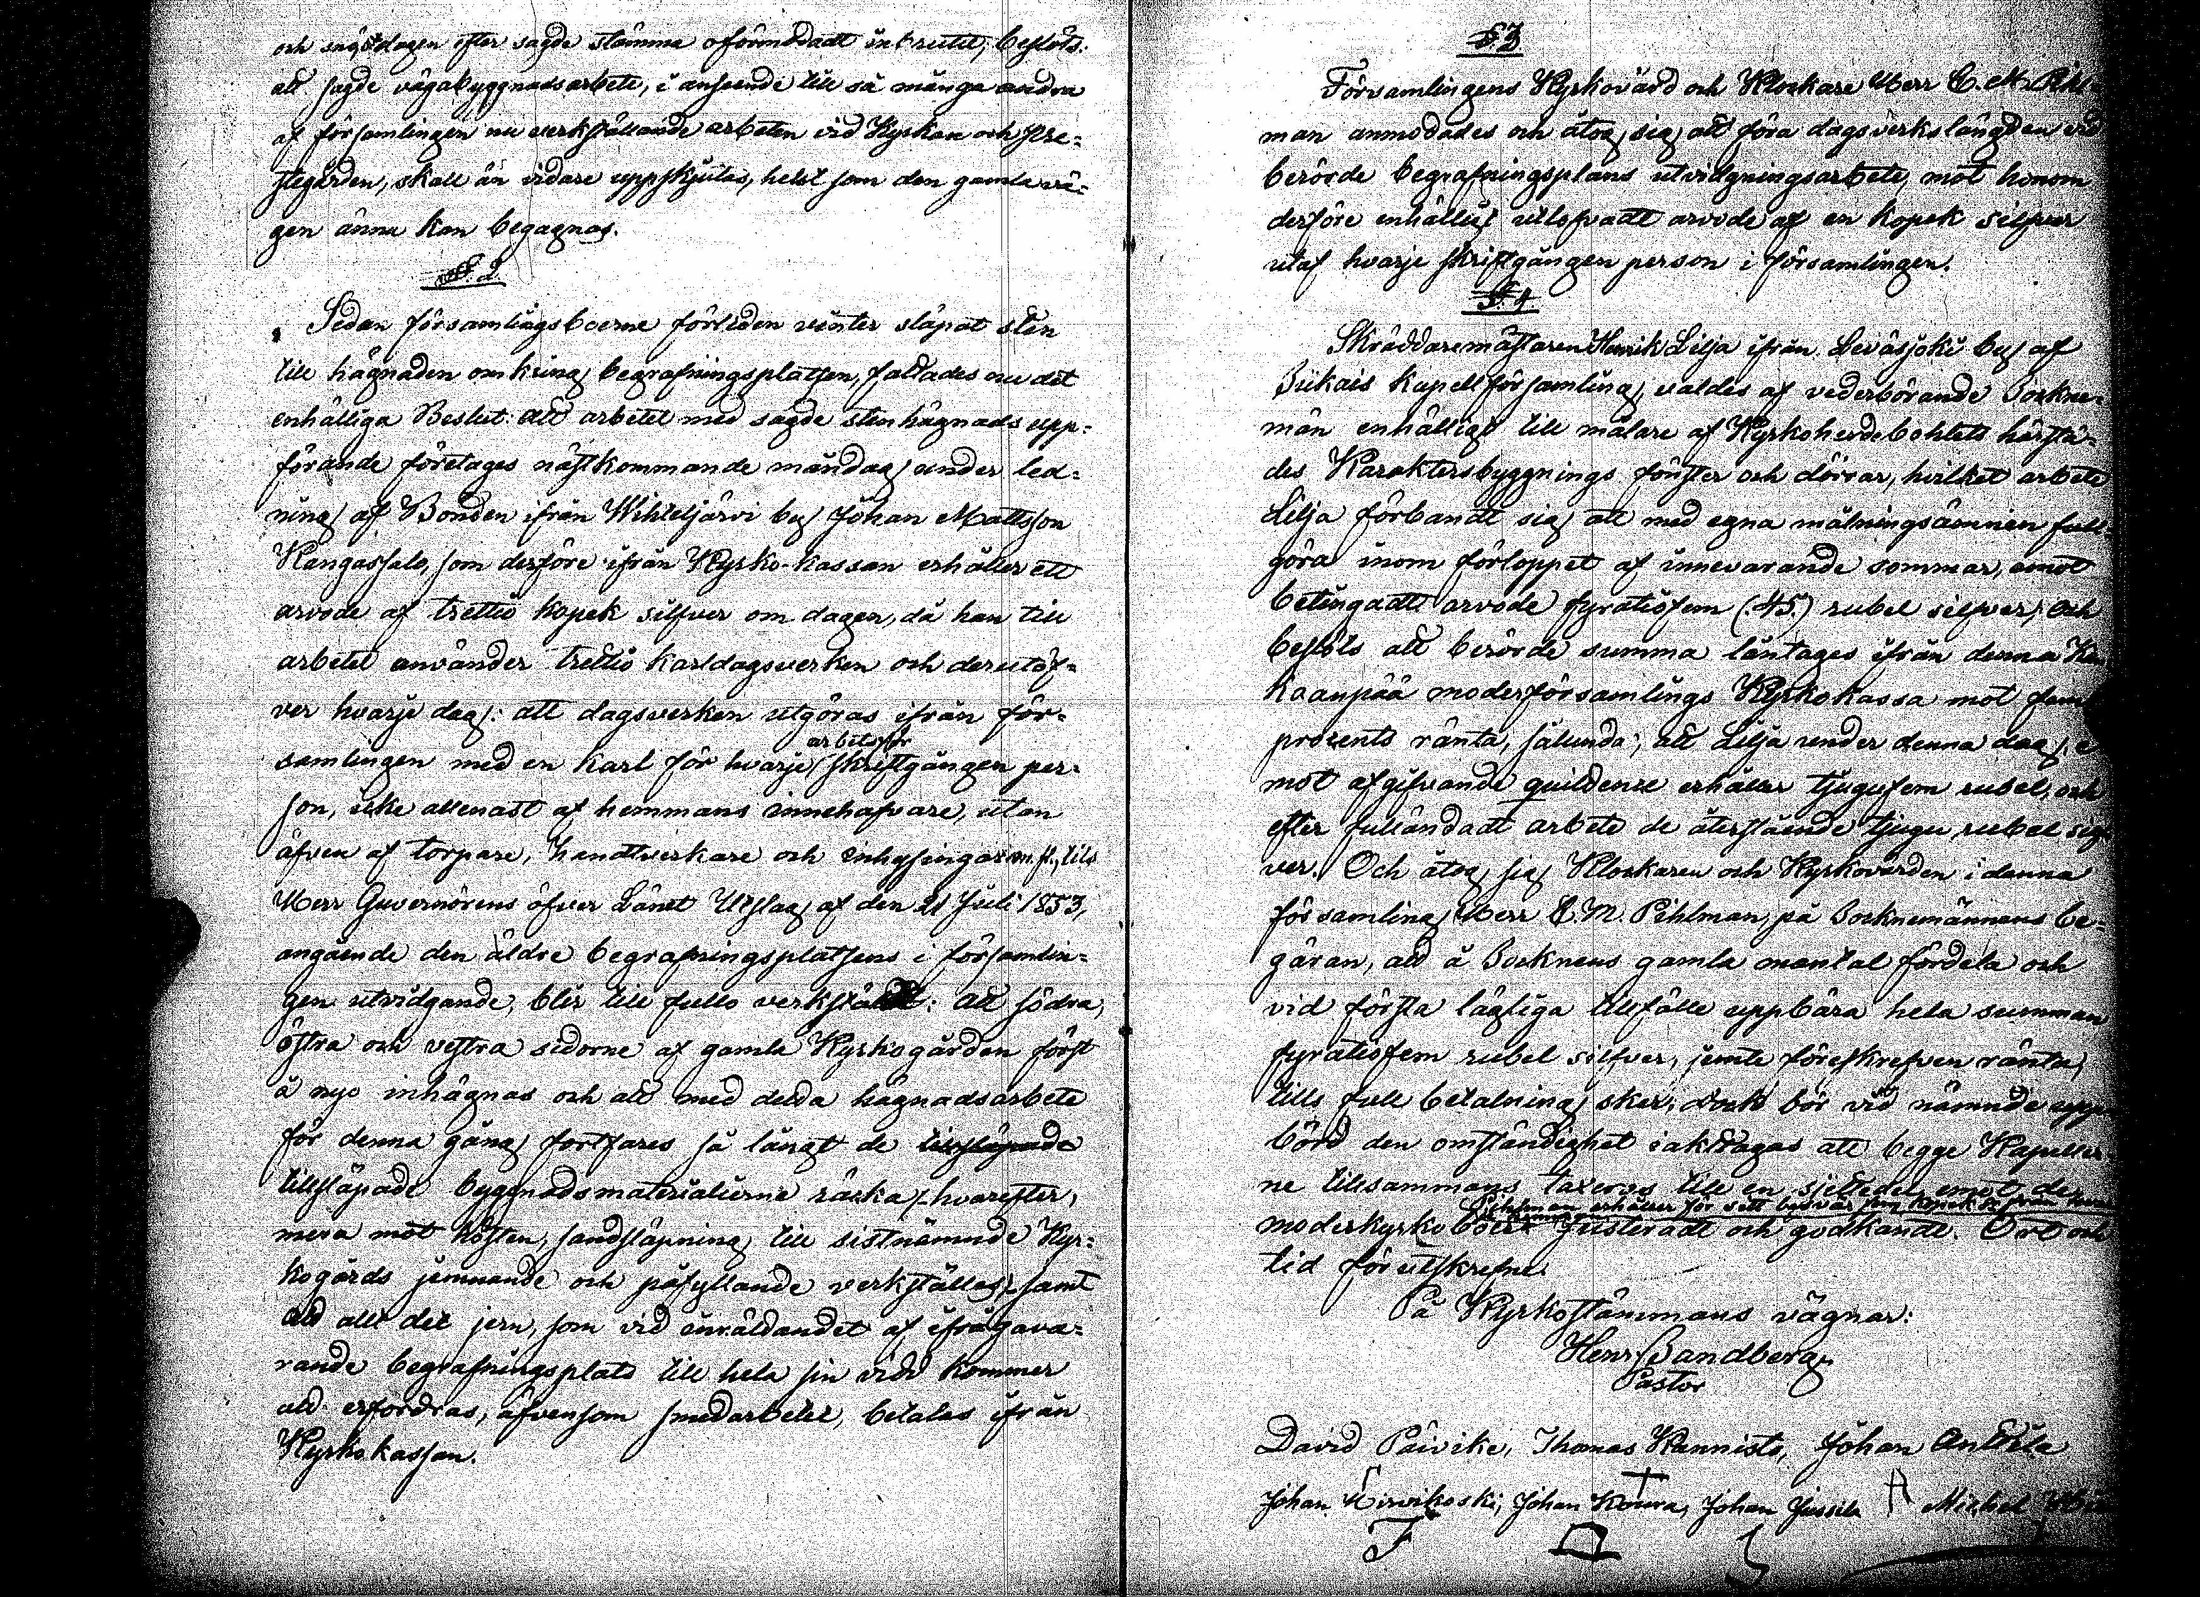 och sagde dagen efter sagde stämma oförmodadt inträtet, beslöts:
att sagde vägabyggnadsarbete, i anseende till så många andra
af församlingen nu verkställande arbeten vid Kyrkan och Pre-
stegården, skall än vidare uppskjutas, helst som den gamla vä-
gen ännu kan begagnas.
§. 2
Sedan församlingsboerne förliden vinter släpat sten
till hägnaden omkring begrafningsplatsen, fattades nu det
enhälliga Beslut: att arbetet med sagde stenhägnads upp-
förande företages nästkommande måndag under led-
ning af Bonden ifrån Wihteljärvi by Johan Mattsson
Kangassalo, som derföre ifrån Kyrko-kassan erhåller ett
arvode af trettio kopek silfver om dagen, då han till
arbetet använder trettio karldagsverken och derutöf-
ver hvarje dag: att dagsverken utgöras ifrån för-
samlingen med en karl för hvarje arbetsför skriftgången per-
son, icke allenast af hemmans innehafvare, utan
äfven af torpare, handtverkare och inhysingar m.fl., tils
Herr Guvernörens öfver Länet Utslag af den 21 Juli 1853,
angående den äldre begrafningsplatsens i församlin-
gen utvidgande, blir till fullo verkstäldt: att södra,
östra och vestra sidorne af gamla Kyrkogården först
å nyo inhägnas och att med detta hägnadsarbete
för denna gång fortfares så långt de tillsläpade
tillsläpade byggnadsmaterialierne räcka, hvarefter,
mera mot hösten, sandsläpning till sistnämnde Kyr-
kogårds jemnande och påfyllande verkställes, samt
att allt det jern, som vid inväldandet af ifrågava-
rande begrafningsplats till hela sin vidd kommer
att erfordras, äfvensom smedarbetet, betalas ifrån
Kyrkokassan.
§ 3
Församlingens Kyrkovärd och Klockare Herr C. M. Pihl-
man anmodades och åtog sig att föra dagsverkslängden vid
berörde begrafningsplans utvidgningsarbete, mot honom
derföre enhälligt utlofvadt arvode af en kopek silfver
utaf hvarje skriftgången person i församlingen.
§. 4
Skräddaremästaren Henrik Lilja ifrån Leväsjoki by af
Siikais Kapellförsamling, valdes af vederbörande Sockne-
män enhälligt till målare af Kyrkoherdebohlets härstä-
des Karaktersbyggnings fönster och dörrar, hvilket arbete
Lilja förbandt sig att med egna målningsämnen full-
göra inom förloppet af innevarande sommar, emot
betingadt arvode fyratiofem (45) rubel silfver; och
beslöts att berörde summa låntages ifrån denna Kan-
kaanpää moderförsamlings Kyrkokassa mot fem
procents ränta, sålunda, att Lilja under denna dag, e-
mot afgifvande quittence erhåller tjugufem rubel, och
efter fulländadt arbete de återstående tjugu rubel silf-
ver. Och åtog sig Klockaren och Kyrkovärden i denna
församling Herr C. M. Pihlman, på Socknemännens be-
gäran, att å Socknens gamla mantal fördela och
vid första lägliga tillfälle uppbära hela summan
fyratiofem rubel silfver, jemte föreskrefven ränta,
tills full betalning sker; dock bör vid nämnde upp-
börd den omständighet iakttagas att begge Kapeller-
ne tillsammans taxeras till en sjettedel emot de
Pihlman erhåller för sitt besvär fem kopek
moderkyrkoboer. Justeradt och godkändt. Ort och
tid förutskrefne.
På Kyrkostämmans vägnar:
Henr. Sandberg
Pastor
David Päivike, Thomas Kannisto, Johan Anttila
Johan Hirvikoski, Johan Koura, Johan Jussila Michel